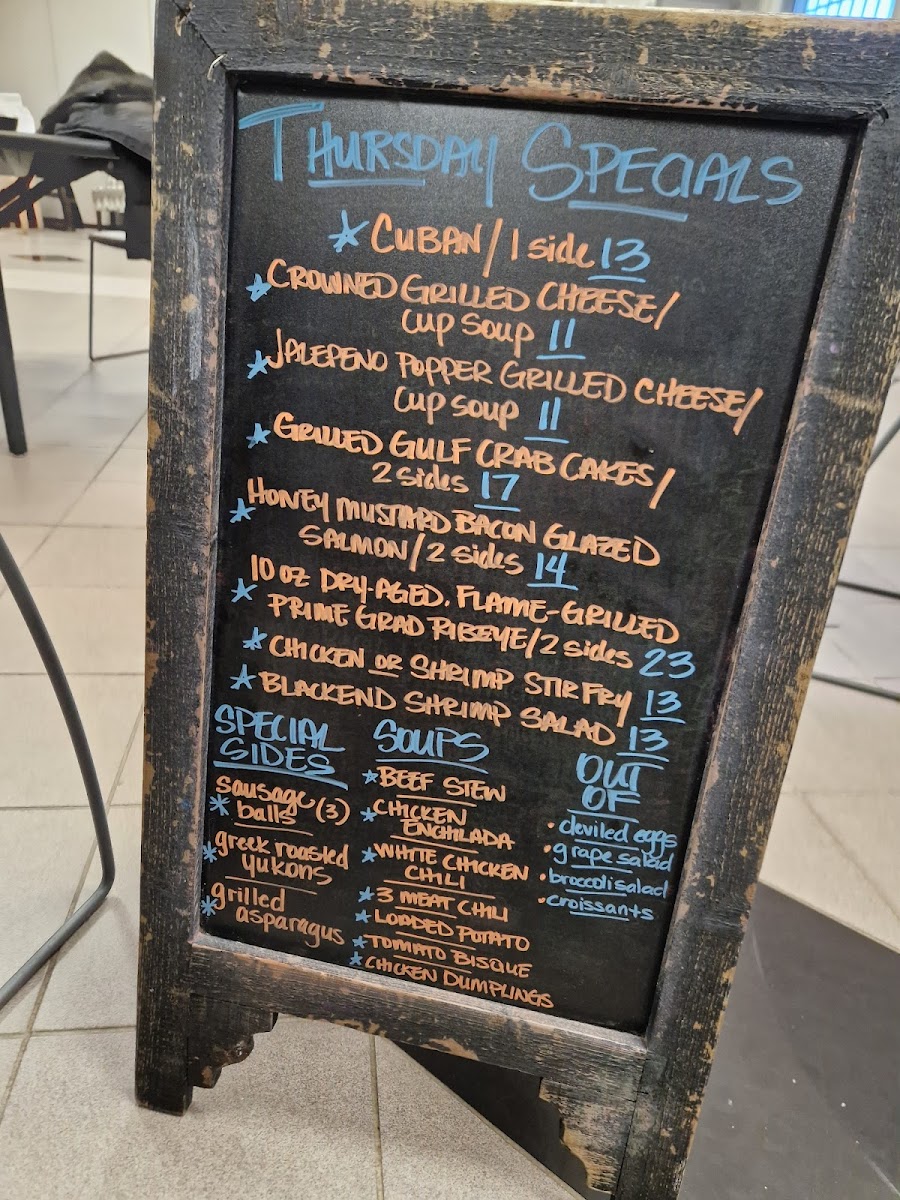 THURSDAY SPECIALS
* CUBAN / 1 side 13
* CROWNED GRILLED CHEESE /
CUP SOUP 11
* JALEPENO POPPER GRILLED CHEESE /
CUP SOUP 11
* GRILLED GULF CRAB CAKES /
2 sides 17
* HONEY MUSTARD BACON GLAZED
SALMON / 2 sides 14
* 10 oz DRY-AGED. FLAME-GRILLED
PRIME GRAD RIBEYE / 2 sides 23
* CHICKEN OR SHRIMP STIR FRY 13
* BLACKEND SHRIMP SALAD 13
SPECIAL
SIDES
sausage
* balls (3)
* greek roasted
yukons
* grilled
asparagus
SOUPS
* BEEF STEW
* CHICKEN
ENCHILADA
* WHITE CHICKEN
CHILI
* 3 MEAT CHILI
* LOADED POTATO
* TOMATO BISQUE
* CHICKEN DUMPLINGS
OUT
OF
• deviled eggs
• grape salad
• broccoli salad
• croissants